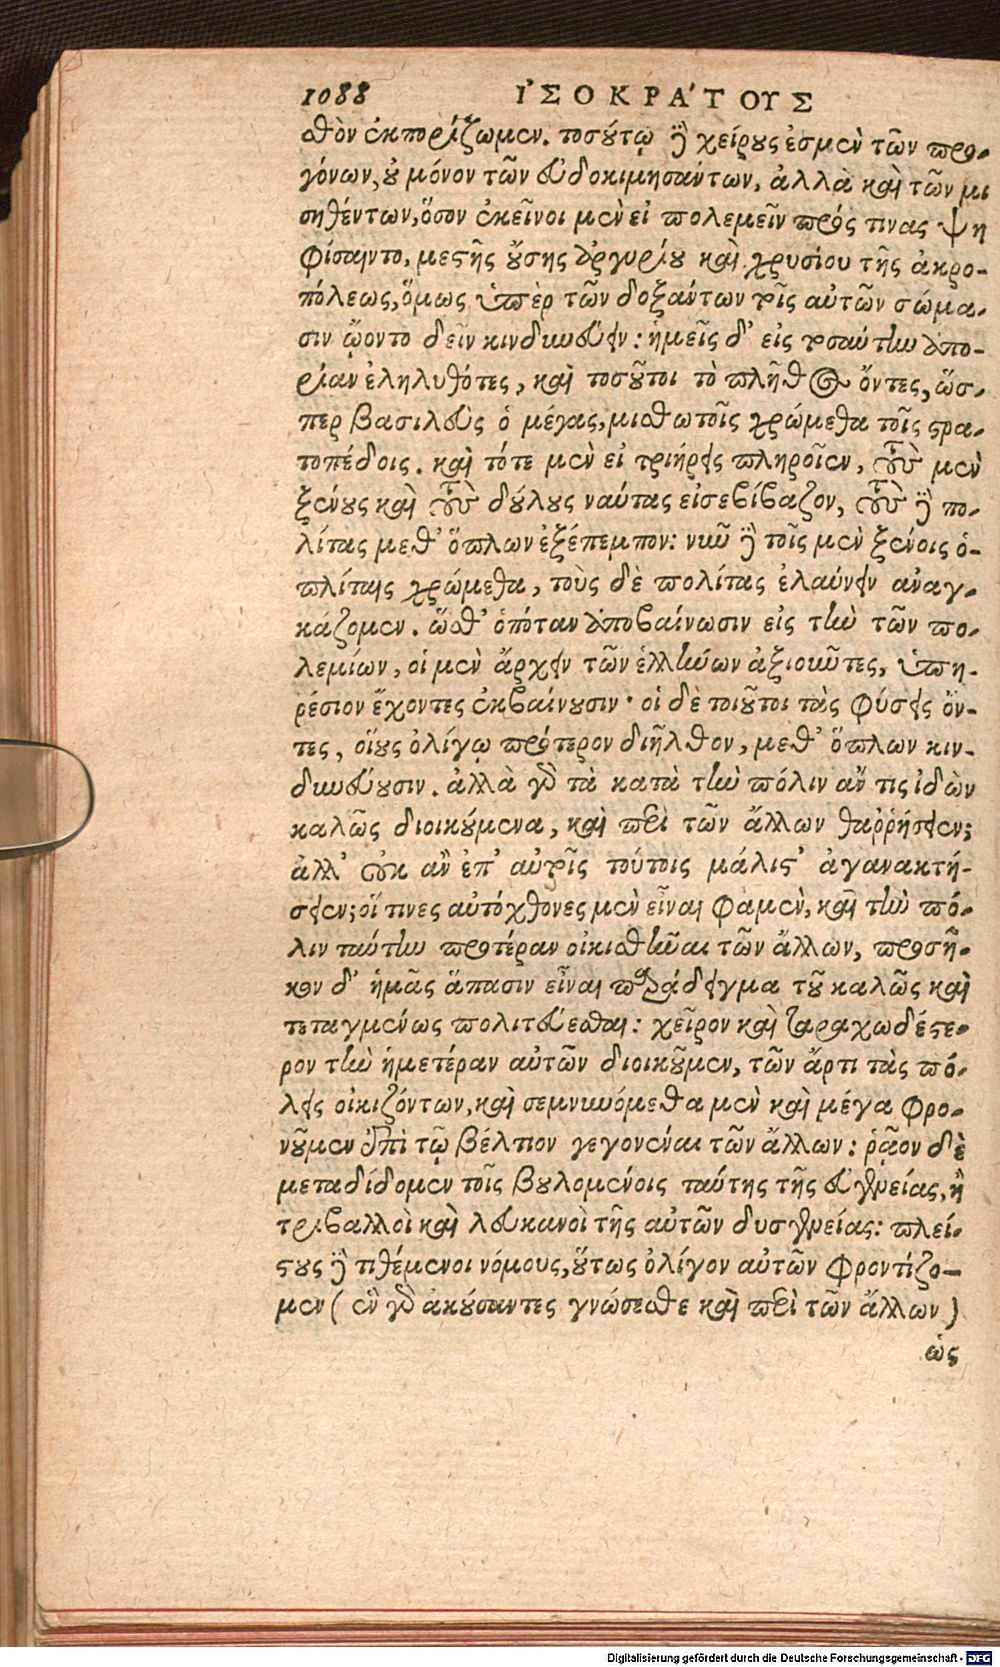 1088 ἸΣΟΚΡΆΤΟΥΣ
θὸν ἐκπορίζωμεν. τοσούτῳ δὲ χείρους ἐσμὲν τῶν προ-
γόνων, οὐ μόνον τῶν εὐδοκιμησάντων, ἀλλὰ καὶ τῶν μι
σηθέντων, ὅσον ἐκεῖνοι μὲν εἰ πολεμεῖν πρός τινας ψη
φίσαιντο, μεστῆς οὔσης ἀργυρίου καὶ χρυσίου τῆς ἀκρο-
πόλεως, ὅμως ὑπὲρ τῶν δοξάντων τοῖς αὐτῶν σώμα-
σιν ᾤοντο δεῖν κινδυνεύειν: ἡμεῖς δ' εἰς τοσαύτην ἀπο-
ρίαν ἐληλυθότες, καὶ τοσοῦτοι τὸ πλῆθος ὄντες, ὥσ-
περ βασιλεὺς ὁ μέγας, μισθωτοῖς χρώμεθα τοῖς στρα-
τοπέδοις. καὶ τότε μὲν εἰ τριήρεις πληροῖεν, τοὺς μὲν
ξένους καὶ τοὺς δούλους ναύτας εἰσεβίβαζον, τοὺς δὲ πο-
λίτας μεθ' ὅπλων ἐξέπεμπον: νῦν δὲ τοῖς μὲν ξένοις ὁ-
πλίταις χρώμεθα, τοὺς δὲ πολίτας ἐλαύνειν ἀναγ-
κάζομεν. ὥσθ' ὁπόταν ἀποβαίνωσιν εἰς τὴν τῶν πο-
λεμίων, οἱ μὲν ἄρχειν τῶν ἑλλήνων ἀξιοῦντες, ὑπη-
ρέσιον ἔχοντες ἐκβαίνουσιν· οἱ δὲ τοιοῦτοι τὰς φύσεις ὄν-
τες, οἵους ὀλίγῳ πρότερον διῆλθον, μεθ' ὅπλων κιν-
δυνεύουσιν. ἀλλὰ γὰρ τὰ κατὰ τὴν πόλιν ἄν τις ἰδὼν
καλῶς διοικούμενα, καὶ περὶ τῶν ἄλλων θαῤῥήσειεν;
ἀλλ' οὐκ ἂν ἐπ' αὐτοῖς τούτοις μάλιστ' ἀγανακτή-
σειεν; οἵ τινες αὐτόχθονες μὲν εἶναι φαμὲν, καὶ τὴν πό-
λιν ταύτην προτέραν οἰκισθῆναι τῶν ἄλλων, προσῆ-
κον δ' ἡμᾶς ἅπασιν εἶναι παράδειγμα τοῦ καλῶς καὶ
τεταγμένως πολιτεύεσθαι: χεῖρον καὶ ταραχωδέστε-
ρον τὴν ἡμετέραν αὐτῶν διοικοῦμεν, τῶν ἄρτι τὰς πό-
λεις οἰκιζόντων, καὶ σεμνυνόμεθα μὲν καὶ μέγα φρο-
νοῦμεν ἐπὶ τῷ βέλτιον γεγονέναι τῶν ἄλλων: ῥᾷον δὲ
μεταδίδομεν τοῖς βουλομένοις ταύτης τῆς εὐγενείας, ἢ
τριβαλλοὶ καὶ λευκανοὶ τῆς αὐτῶν δυσγενείας: πλεί-
στους δὲ τιθέμενοι νόμους, οὕτως ὀλίγον αὐτῶν φροντίζο-
μεν (ἓν γὰρ ἀκούσαντες γνώσεσθε καὶ περὶ τῶν ἄλλων)
ὡς
Digitalisierung gefördert durch die Deutsche Forschungsgemeinschaft - DFG